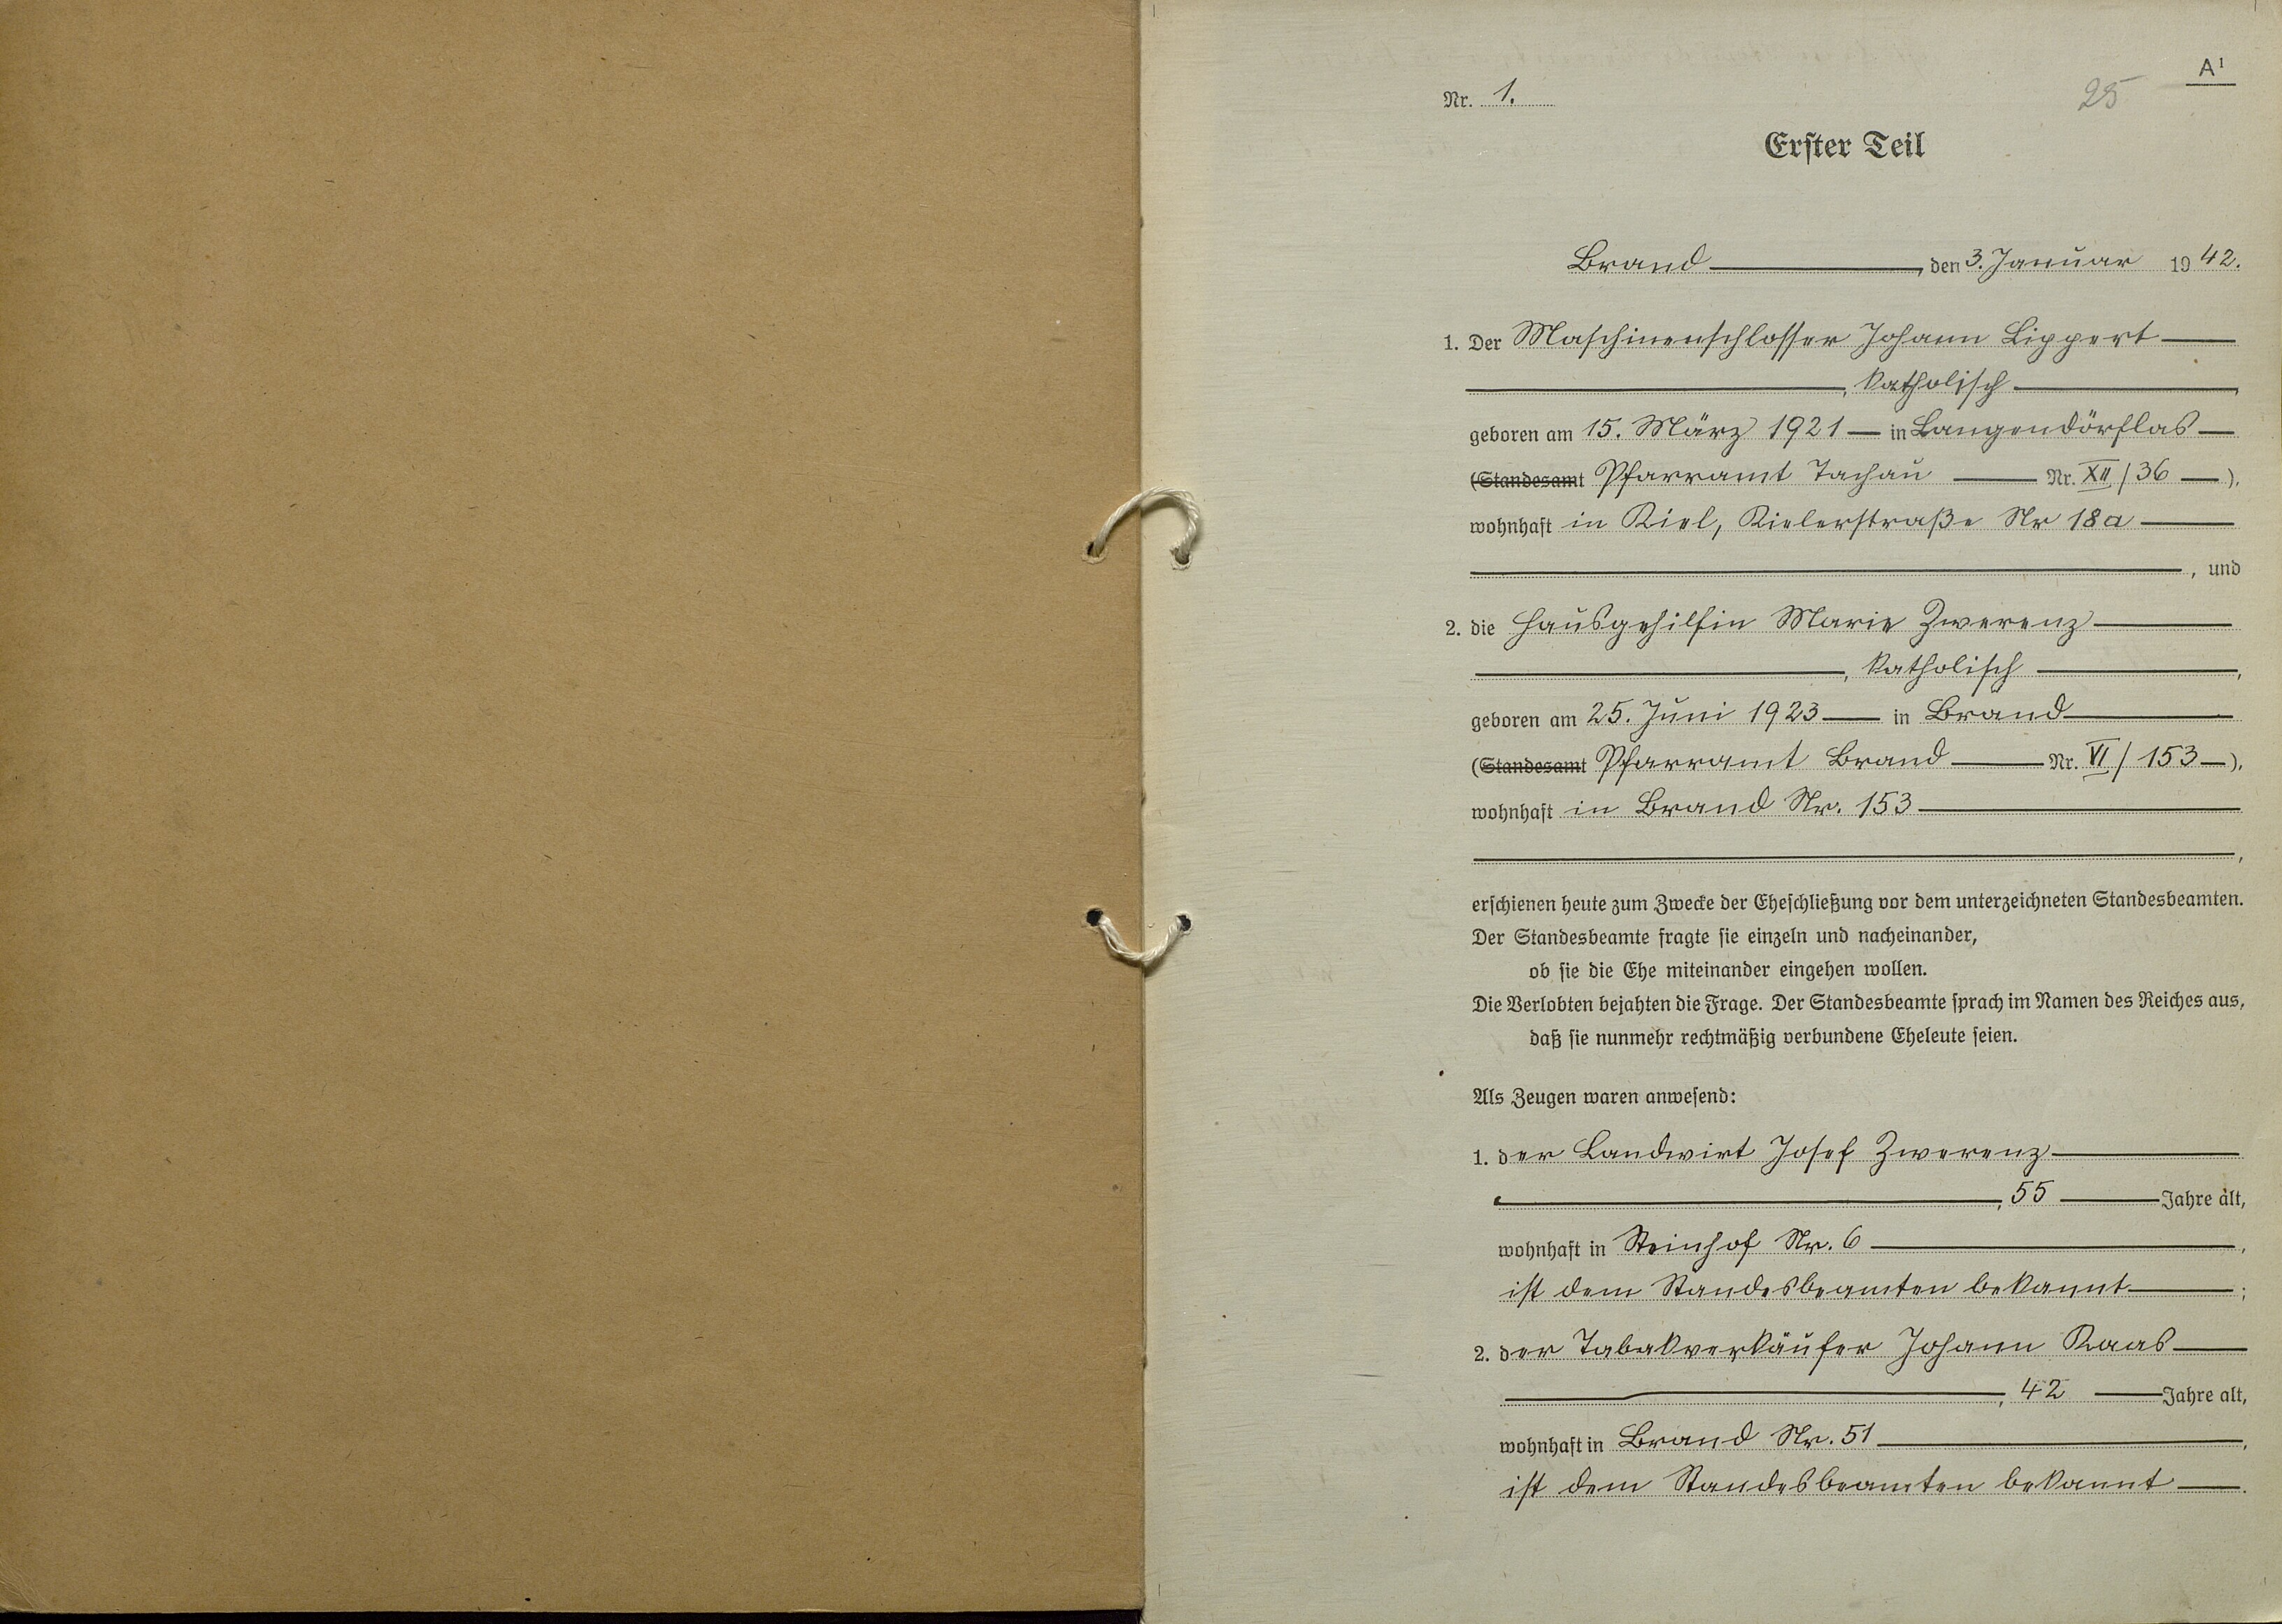 A¹
Nr. 1. 25
Erster Teil
Brand, den 3. Januar 1942.
1. Der Maschinenschlosser Johann Lippert
, katholisch
geboren am 15. März 1921 — in Langendörflas
(Standesamt Pfarramt Tachau Nr. XII/36 —),
wohnhaft in Kiel, Kielerstraße Nr 18a
, und
2. die Hausgehilfin Marie Zwerenz
, katholisch ,
geboren am 25. Juni 1923 — in Brand
(Standesamt Pfarramt Brand — Nr. VI/153 —),
wohnhaft in Brand Nr. 153
,
erschienen heute zum Zwecke der Eheschließung vor dem unterzeichneten Standesbeamten.
Der Standesbeamte fragte sie einzeln und nacheinander,
ob sie die Ehe miteinander eingehen wollen.
Die Verlobten bejahten die Frage. Der Standesbeamte sprach im Namen des Reiches aus,
daß sie nunmehr rechtmäßig verbundene Eheleute seien.
Als Zeugen waren anwesend:
1. der Landwirt Josef Zwerenz
, 55 — Jahre alt,
wohnhaft in Steinhof Nr. 6 ,
ist dem Standesbeamten bekannt ;
2. der Tabakverkäufer Johann Kaas
, 42 — Jahre alt,
wohnhaft in Brand Nr. 51 ,
ist dem Standesbeamten bekannt .